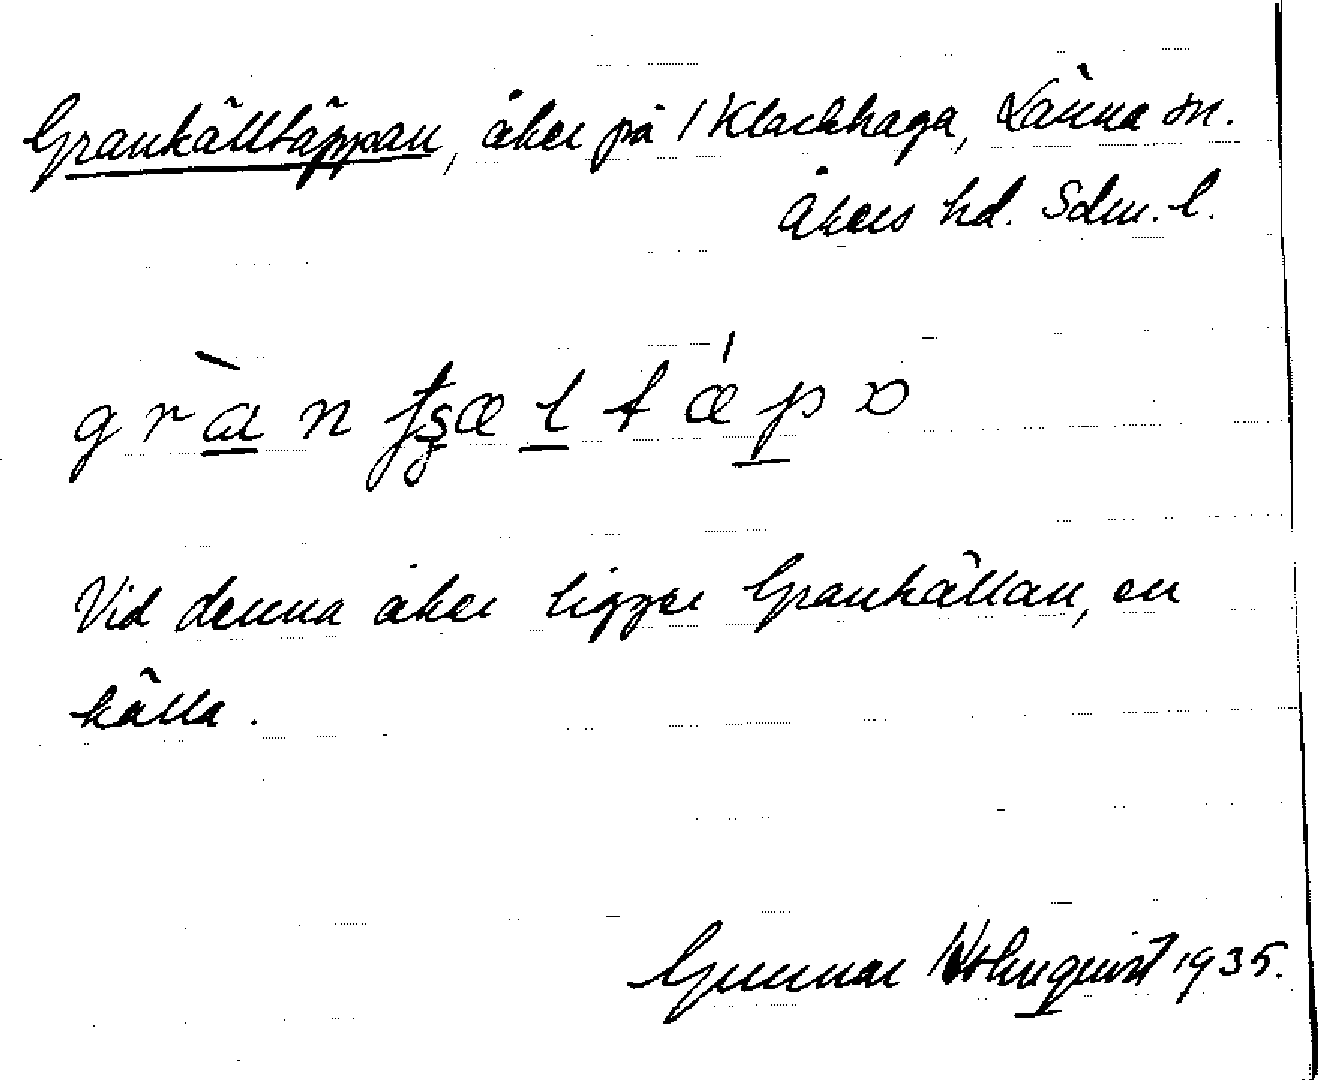 Grankälltäppan, åker på 1 Klackhaga, Länna sn.
Åkers hd. Sdm. l.
Vid denna åker ligger Grankällan, en
källa.
Gunnar Holmquist 1935.